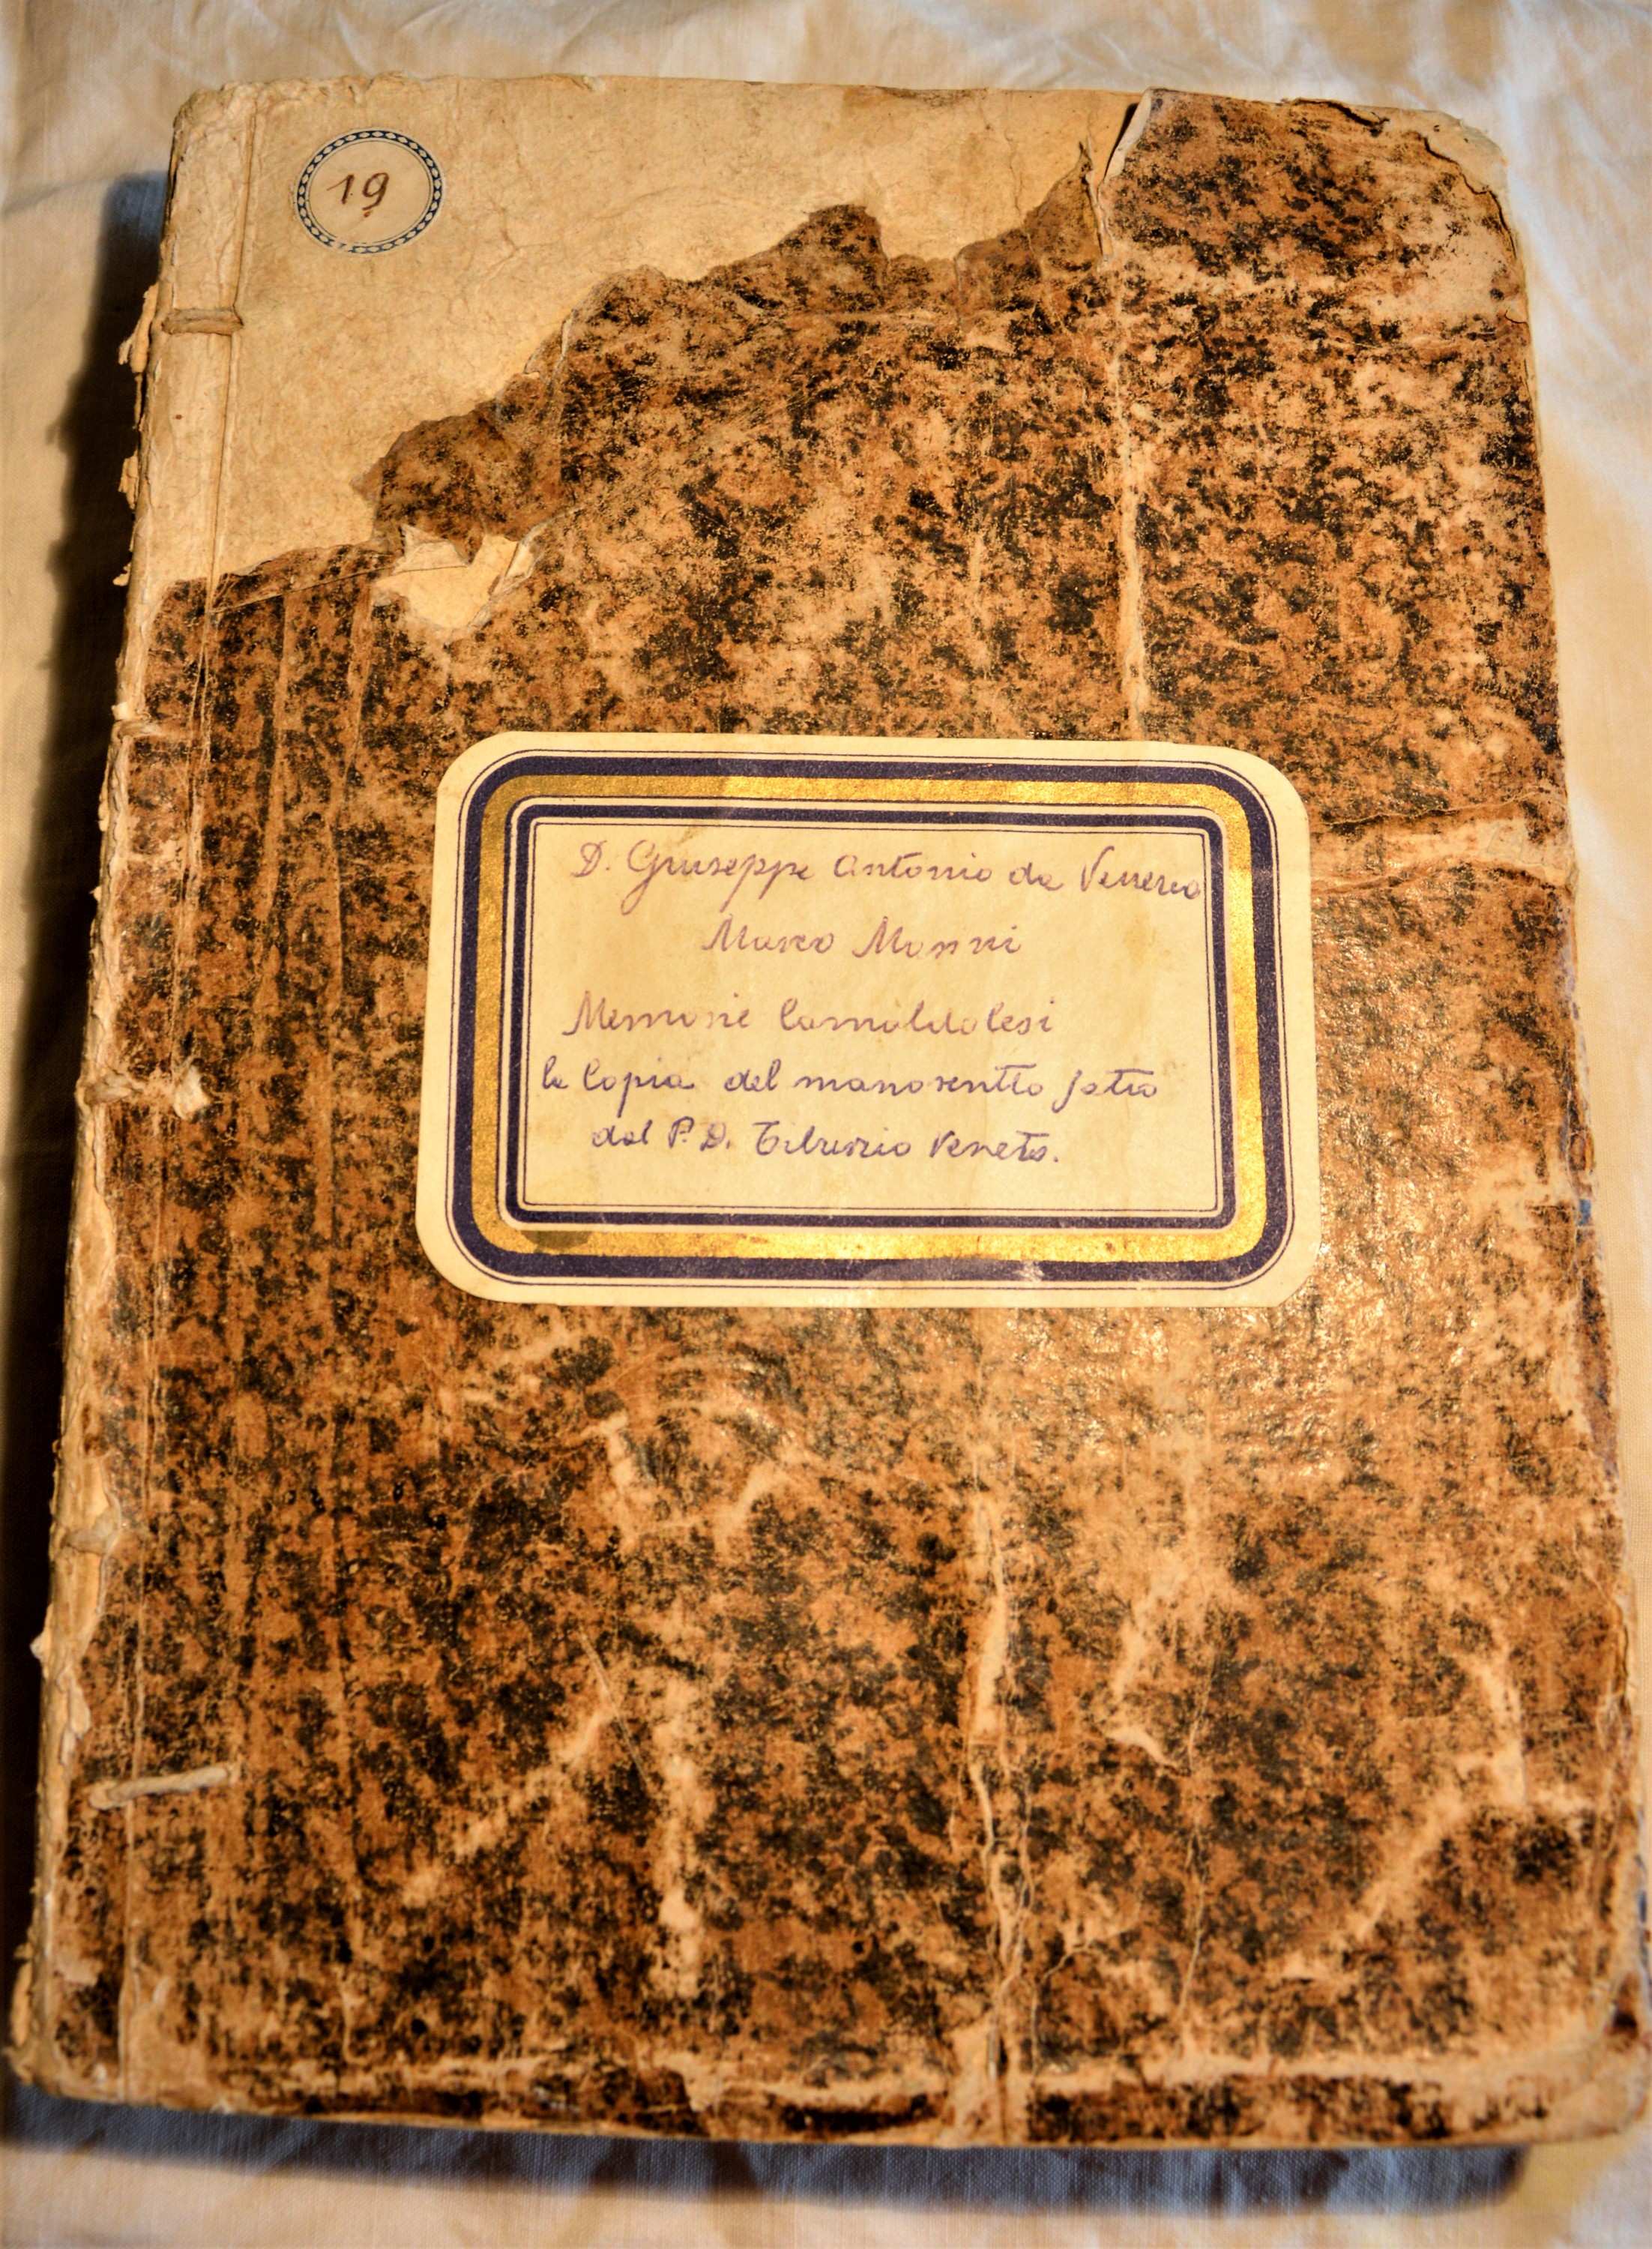 19
D. Giuseppe Antonio da Venezia
Memorie Camaldolesi
la Copia del manoscritto fatto
dal P. D. Tiburzio Veneto.